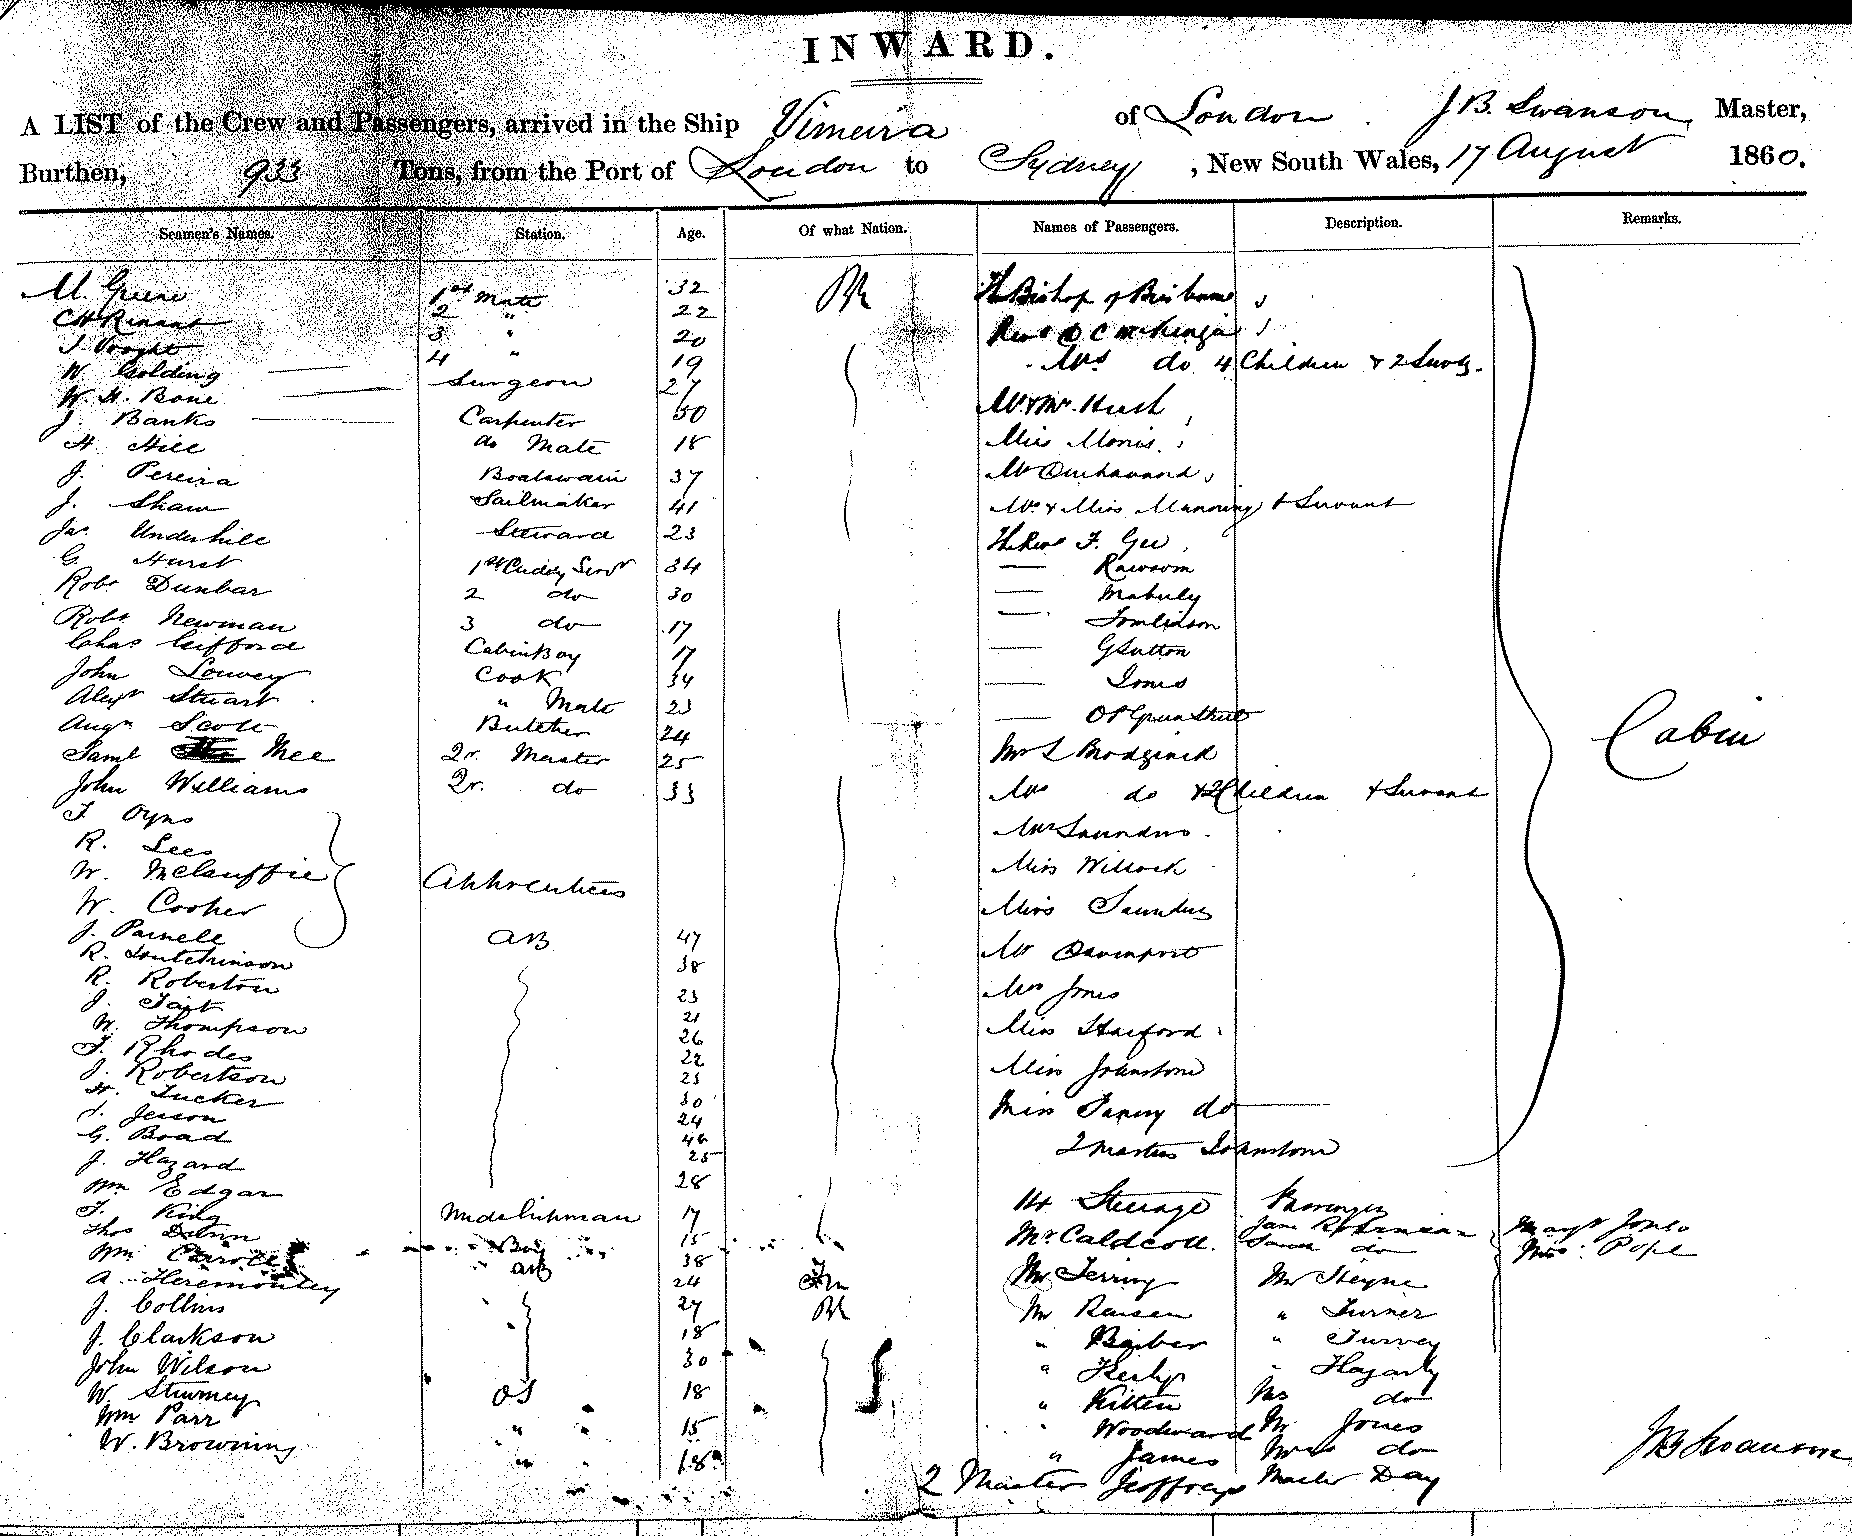 INWARD.
A LIST of the Crew and Passengers, arrived in the Ship Vimeira of London J B. Swanson, Master,
Burthen, 933 Tons, from the Port of London to Sydney, New South Wales, 17 August 1860.
Seamen's Names. Station. Age. Of what Nation. Names of Passengers. Description. Remarks.
M. Greene 1st Mate 32 Br The Bishop of Brisbane
2 " 22
3 " 20
W. Golding 4 " 19 Mrs do 4 Children & 2 Servts.
W. H. Bone Surgeon 27
J. Banks Carpenter 50
H. Hill do Mate 18 Miss
J. Pereira Boatswain 37 Mr
J. Shaw Sailmaker 41 Mrs & Miss Manning & Servant
Jas. Underhill Steward 23 The Revd F. Gee
G. Hurst 1st Cuddy Servt 34 — Rawsom
Robt Dunbar 2 do 30 —
Robt Newman 3 do 17 — Tomlinson
Chas Gifford Cabin Boy 17 — G Sutton
John Cook 34 — Jones
Alexr Stuart " Mate 23 —
Augn Scott Butcher 24 Mr
Saml Mee Qr. Master 25
John Williams Qr. do 33 Mrs do & 2 Children & Servant
T. Oyns Mrs Saunders
R. Lees Miss Willock
W. Apprentices
W. Cooper Miss Saunders
J. Parnell AB 47 Mr Davenport
R. Hutchinson 38
R. Roberton 23 Mrs Jones
J. Tait 21
W. Thompson 26 Miss Harford
T. Rhodes 22
J. Robertson 23 Miss Johnstone
H. Tucker 30
24 Miss Fanny do
G. Boad 46
J. Hazard 25 2 Masters Johnstone
Wm Edgar 28
Cabin
T. King Midshipman 17 14 Steerage Passengers
Thos Boy 15 Mr Caldcott. Jane Margt Jones
Wm Carroll AB 38 Sarah do Mrs. Pope
A. 24 Mr Mr Heyne
J. Collins 27 Br Mr " Turner
J. Clarkson 18 " Barber " Turvey
John Wilson 30 " " Hagarty
W. Sturmey OS 18 " Kitten Mrs do
Wm Parr " 15 " Woodward Mr Jones
W. Browning " 18 " James Mrs do
2 Masters Jeoffreys Master Day
J B Swanson